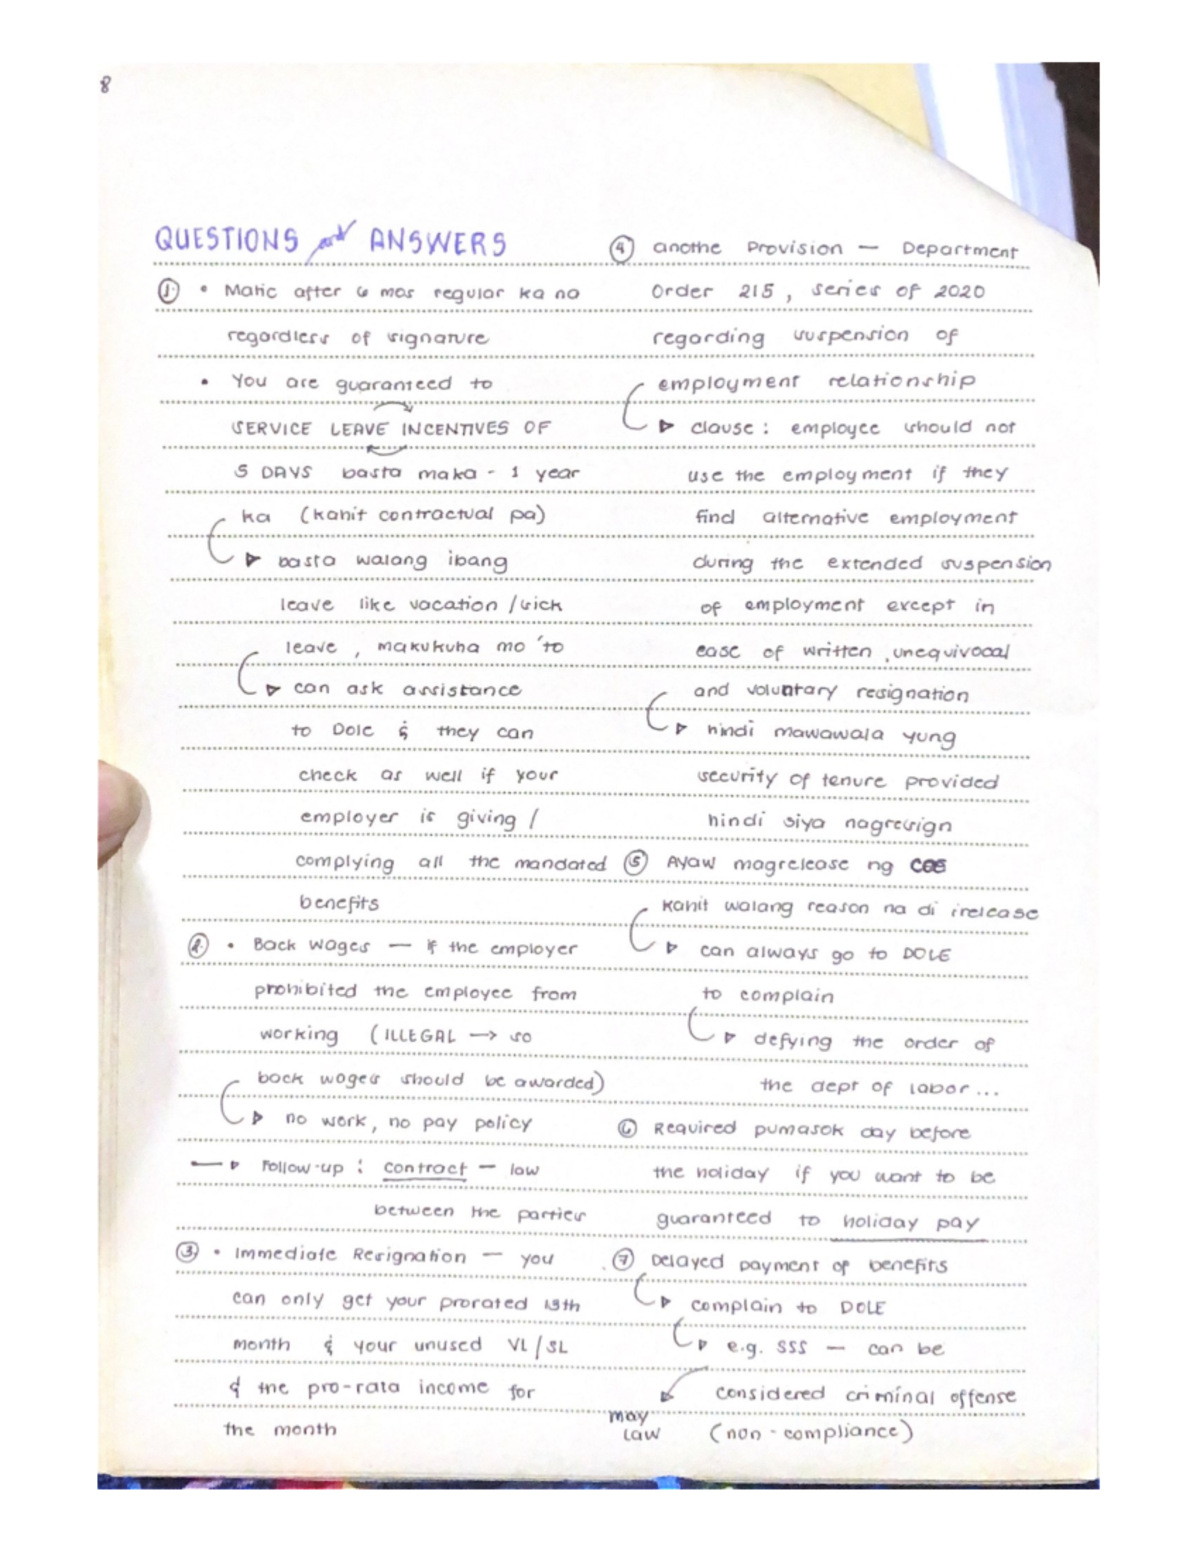 8
QUESTIONS and ANSWERS
① • Matic after 6 mos regular ka na
regardless of signature
• You are guaranteed to
SERVICE LEAVE INCENTIVES OF
5 DAYS basta maka - 1 year
ka (kahit contractual pa)
basta walang ibang
leave like vacation /sick
leave , makukuha mo 'to
can ask assistance
to Dole & they can
check as well if your
employer is giving /
complying all the mandated
benefits
② • Back wages — if the employer
prohibited the employee from
working (ILLEGAL → so
back wages should be awarded)
no work, no pay policy
Follow-up : contract — law
between the parties
③ • Immediate Resignation — you
can only get your prorated 13th
month & your unused VL/SL
& the pro-rata income for
the month
④ anothe Provision — Department
Order 215 , series of 2020
regarding suspension of
employment relationship
clause : employee should not
use the employment if they
find alternative employment
during the extended suspension
of employment except in
case of written ,unequivocal
and voluntary resignation
hindi mawawala yung
security of tenure provided
hindi siya nagresign
⑤ Ayaw magrelease ng COE
kahit walang reason na di irelease
can always go to DOLE
to complain
defying the order of
the dept of labor...
⑥ Required pumasok day before
the holiday if you want to be
guaranteed to holiday pay
⑦ Delayed payment of benefits
complain to DOLE
e.g. SSS — can be
considered criminal offense
may
law (non-compliance)